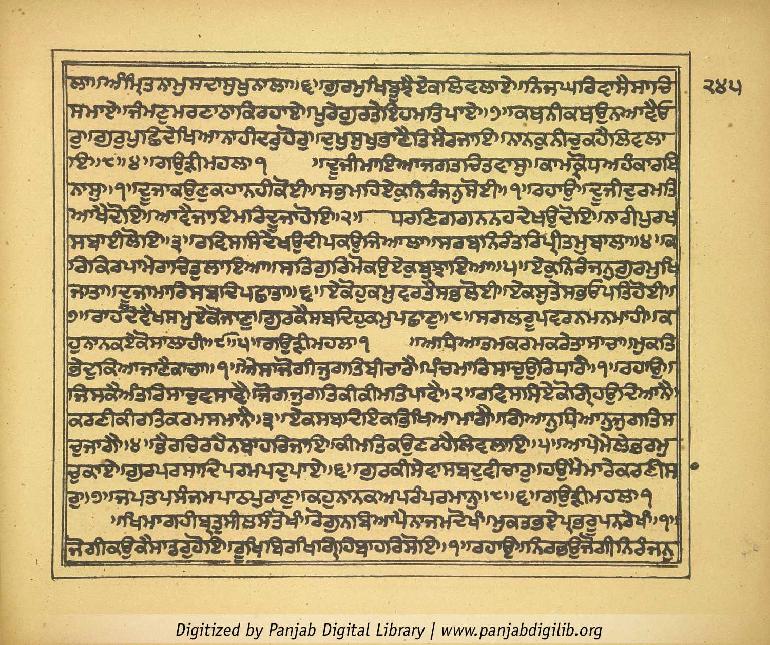 ੨੪੫
ਲਾ॥ਅੰਮ੍ਰਿਤਨਾਮੁਸਦਾਸੁਖੁਨਾਲਾ॥੬॥ਗੁਰਮੁਖਿਬੂਝੈਏਕਲਿਵਲਾਏ॥ਨਿਜਘਰਿਵਾਸੈਸਾਚਿ
ਸਮਾਏ॥ਜੰਮਣੁਮਰਣਾਠਾਕਿਰਹਾਏ॥ਪੂਰੇਗੁਰਤੇਇਹਮਤਿਪਾਏ॥੭॥ਕਥਨੀਕਥਉਨਆਵੈਓ
ਰੁ॥ਗੁਰੁਪੁਛਿਦੇਖਿਆਨਾਹੀਦਰੁਹੋਰੁ॥ਦੁਖੁਸੁਖੁਭਾਣੈਤਿਸੈਰਜਾਇ॥ਨਾਨਕੁਨੀਚੁਕਹੈਲਿਵਲਾ
ਇ॥੮॥੪॥ਗਉੜੀਮਹਲਾ੧ ॥ਦੂਜੀਮਾਇਆਜਗਤਚਿਤਵਾਸੁ॥ਕਾਮਕ੍ਰੋਧਅਹੰਕਾਰਬਿ
ਨਾਸੁ॥੧॥ਦੂਜਾਕਉਣੁਕਹਾਨਹੀਕੋਈ॥ਸਭਮਹਿਏਕੁਨਿਰੰਜਨੁਸੋਈ॥੧॥ਰਹਾਉ॥ਦੂਜੀਦੁਰਮਤਿ
ਆਖੈਦੋਇ॥ਆਵੈਜਾਇਮਰਿਦੂਜਾਹੋਇ॥੨॥ ਧਰਣਿਗਗਨਨਹਦੇਖਉਦੋਇ॥ਨਾਰੀਪੁਰਖ
ਸਬਾਈਲੋਇ॥੩॥ਰਵਿਸਸਿਦੇਖਉਦੀਪਕਉਜਿਆਲਾ॥ਸਰਬਨਿਰੰਤਰਿਪ੍ਰੀਤਮੁਬਾਲਾ॥੪॥ਕ
ਰਿਕਿਰਪਾਮੇਰਾਚਿਤੁਲਾਇਆ॥ਸਤਿਗੁਰਿਮੋਕਉਏਕੁਬੁਝਾਇਆ॥੫॥ਏਕੁਨਿਰੰਜਨੁਗੁਰਮੁਖਿ
ਜਾਤਾ॥ਦੂਜਾਮਾਰਿਸਬਦਿਪਛਾਤਾ॥੬॥ਏਕੋਹੁਕਮੁਵਰਤੈਸਭਲੋਈ॥ਏਕਸੁਤੇਸਭਓਪਤਿਹੋਈ॥
੭॥ਰਾਹਦੋਵੈਖਸਮੁਏਕੋਜਾਣੁ॥ਗੁਰਕੈਸਬਦਿਹੁਕਮੁਪਛਾਣੁ॥੮॥ਸਗਲਰੂਪਵਰਨਮਨਮਾਹੀ॥ਕ
ਹੁਨਾਨਕਏਕੋਸਾਲਾਹੀ॥੯॥੫॥ਗਉੜੀਮਹਲਾ੧ ॥ਅਧਿਆਤਮਕਰਮਕਰੇਤਾਸਾਚਾ॥ਮੁਕਤਿ
ਭੇਦੁਕਿਆਜਾਣੈਕਾਚਾ॥੧॥ਐਸਾਜੋਗੀਜੁਗਤਿਬੀਚਾਰੈ॥ਪੰਚਮਾਰਿਸਾਚੁਉਰਿਧਾਰੈ॥੧॥ਰਹਾਉ॥
ਜਿਸਕੈਅੰਤਰਿਸਾਚੁਵਸਾਵੈ॥ਜੋਗਜੁਗਤਿਕੀਕੀਮਤਿਪਾਵੈ॥੨॥ਰਵਿਸਸਿਏਕੋਗ੍ਰਿਹਉਦਿਆਨੈ॥
ਕਰਣੀਕੀਰਤਿਕਰਮਸਮਾਨੈ॥੩॥ਏਕਸਬਦਇਕਭਿਖਿਆਮਾਗੈ॥ਗਿਆਨੁਧਿਆਨੁਜੁਗਤਿਸ
ਚੁਜਾਗੈ॥੪॥ਭੈਰਚਿਰਹੈਨਬਾਹਰਿਜਾਇ॥ਕੀਮਤਿਕਉਣਰਹੈਲਿਵਲਾਇ॥੫॥ਆਪੇਮੇਲੇਭਰਮੁ
ਚੁਕਾਏ॥ਗੁਰਪਰਸਾਦਿਪਰਮਪਦੁਪਾਏ॥੬॥ਗੁਰਕੀਸੇਵਾਸਬਦੁਵੀਚਾਰੁ॥ਹਉਮੈਮਾਰੇਕਰਣੀਸਾ
ਰੁ॥੭॥ਜਪਤਪਸੰਜਮਪਾਠਪੁਰਾਣੁ॥ਕਹੁਨਾਨਕਅਪਰੰਪਰਮਾਨੁ॥੮॥੬॥ਗਉੜੀਮਹਲਾ੧
॥ਖਿਮਾਗਹੀਬ੍ਰਤੁਸੀਲਸੰਤੋਖੰ॥ਰੋਗੁਨਬਿਆਪੈਨਾਜਮਦੋਖੰ॥ਮੁਕਤਭਏਪ੍ਰਭਰੂਪਨਰੇਖੰ॥੧॥
ਜੋਗੀਕਉਕੈਸਾਡਰੁਹੋਇ॥ਰੂਖਿਬਿਰਖਿਗ੍ਰਿਹਿਬਾਹਰਿਸੋਇ॥੧॥ਰਹਾਉ॥ਨਿਰਭਉਜੋਗੀਨਿਰੰਜਨੁ
Digitized by Panjab Digital Library | www.panjabdigilib.org